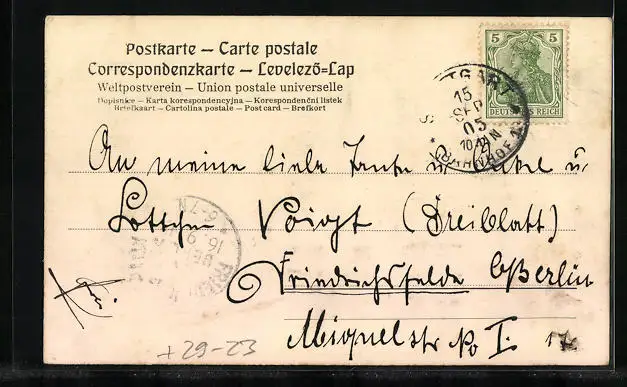 Postkarte – Carte postale
Correspondenzkarte – Levelező-Lap
Weltpostverein – Union postale universelle
Dopisnice – Karta korespondencyjna – Korespondenční listek
Briefkaart – Cartolina postale – Post card – Brefkort
5 5
DEUTSCHES REICH
STUTTGART
15
SEP
05
10-11 N
BAHNHOF
An meine liebe Tante u Onkel u
Lottchen Voigt (Dreiblatt)
Friedrichsfelde b/Berlin
Miquelstr No I. 17
6-7 N
16.9
+29-23